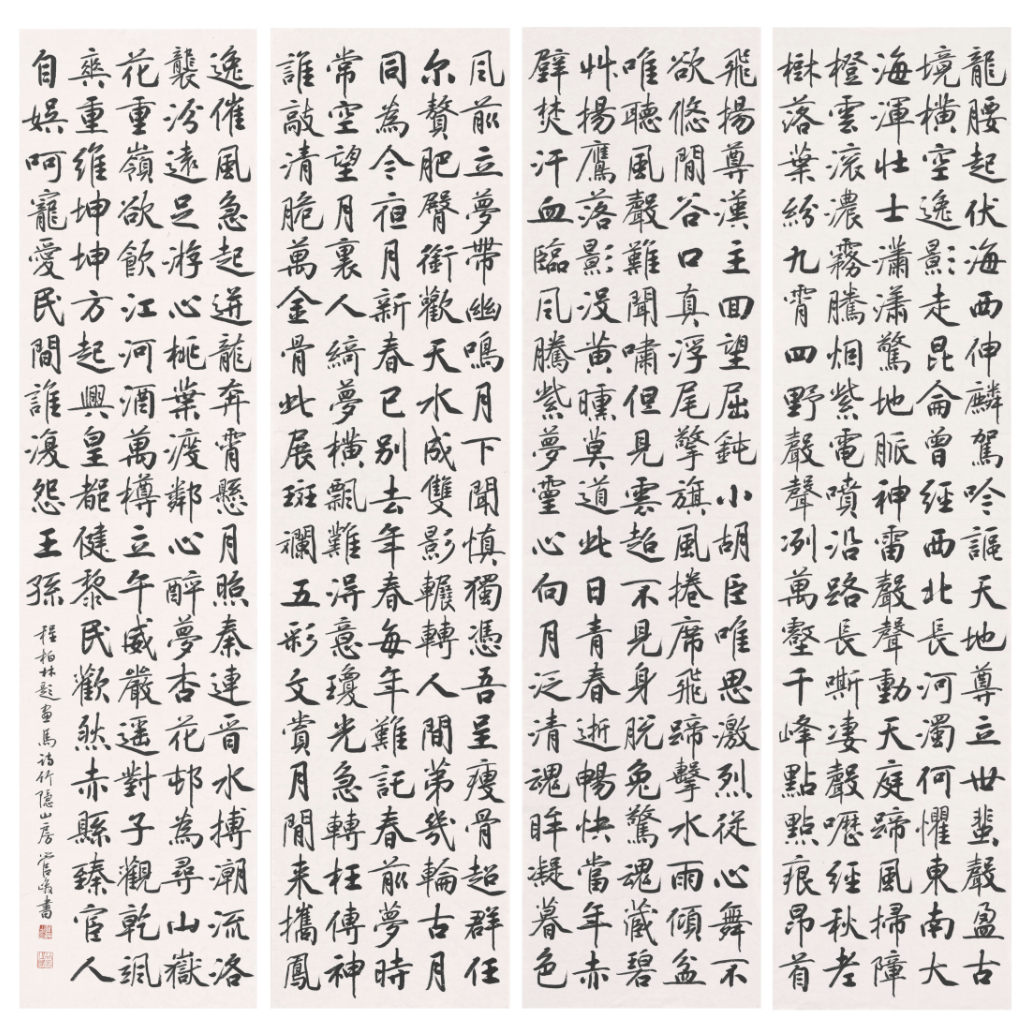 龍腰起伏海西伸麟駕吟謳天地尊立世蜚聲盈古
境橫空逸影走昆侖曾經西北長河濁何懼東南大
海渾壯士瀟瀟驚地脈神雷聲聲動天庭蹄風掃障
橙雲滾濃霧騰烟紫電噴沿路長嘶淒聲嚦經秋老
樹落葉紛九霄四野聲聲冽萬壑千峰點點痕昂首
飛揚尊漢主回望屈鈍小胡臣唯思激烈從心舞不
欲悠閒谷口真浮尾擎旗風捲席飛蹄擊水雨傾盆
唯聽風聲難聞嘯但見雲超不見身脫兔驚魂藏碧
艸揚鷹落影沒黃曛莫道此日青春逝暢快當年赤
壁焚汗血臨風騰紫夢靈心向月泛清魂眸凝暮色
風前立夢帶幽鳴月下聞慎獨憑吾呈瘦骨超群任
尔贅肥臀銜歡天水成雙影輾轉人間第幾輪古月
同為今夜月新春已別去年春每年難託春前夢時
常空望月裏人綺夢橫飄難得意瓊光急轉枉傳神
誰敲清脆萬金骨此展斑斕五彩文賞月閒來攜鳳
逸催風急起迸龍奔霄懸月照秦連晉水搏潮流洛
襲汾遠足游心桃葉渡鄰心醉夢杏花邨為尋山嶽
花重嶺欲飲江河酒萬樽立午威嚴遥對子觀乾颯
爽重維坤坤方起興皇都健黎民歡煞赤縣臻宦人
自娛呵寵愛民間誰復怨王孫
程柏林題畫馬詩竹隱山房書